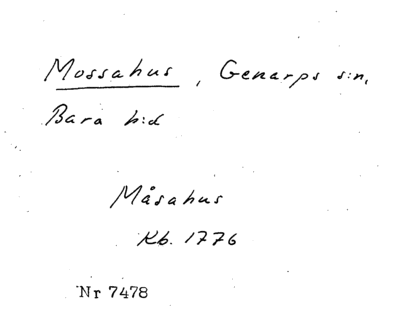 Mossahus, Genarps s:n,
Bara h:d
Måsahus
Kb. 1776
Nr 7478